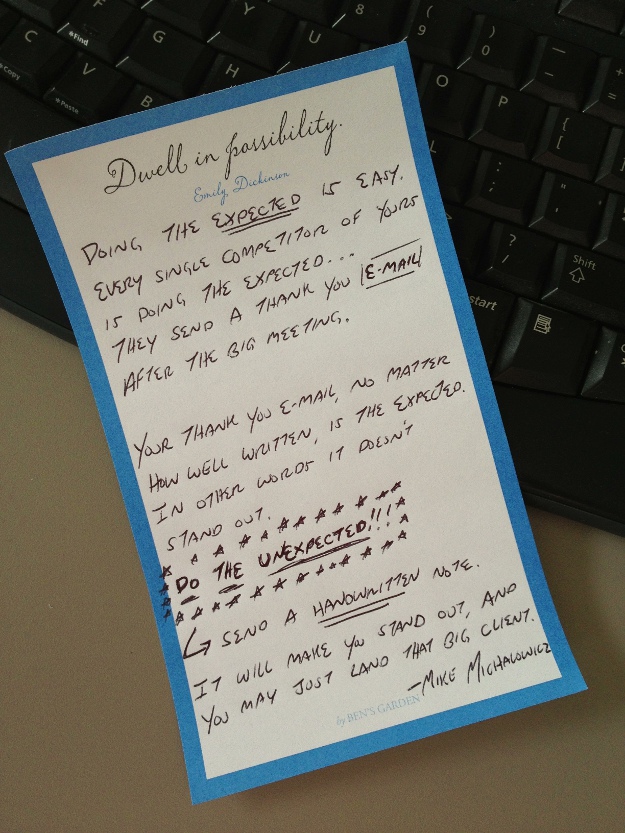 Dwell in possibility.
Emily Dickinson
DOING THE EXPECTED IS EASY.
EVERY SINGLE COMPETITOR OF YOURS
IS DOING THE EXPECTED...
THEY SEND A THANK YOU |E-MAIL|
AFTER THE BIG MEETING.
YOUR THANK YOU E-MAIL, NO MATTER
HOW WELL WRITTEN, IS THE EXPECTED.
IN OTHER WORDS IT DOESN'T
STAND OUT.
DO THE UNEXPECTED!!!
↳ SEND A HANDWRITTEN NOTE.
IT WILL MAKE YOU STAND OUT, AND
YOU MAY JUST LAND THAT BIG CLIENT.
—MIKE MICHALOWICZ
by BEN'S GARDEN
8
( 9
) 0
— -
+ =
C
F
T
Y
U
•Find
•Copy
V
G
H
O
P
{ [
•Paste
B
: ;
" '
? /
Shift
start